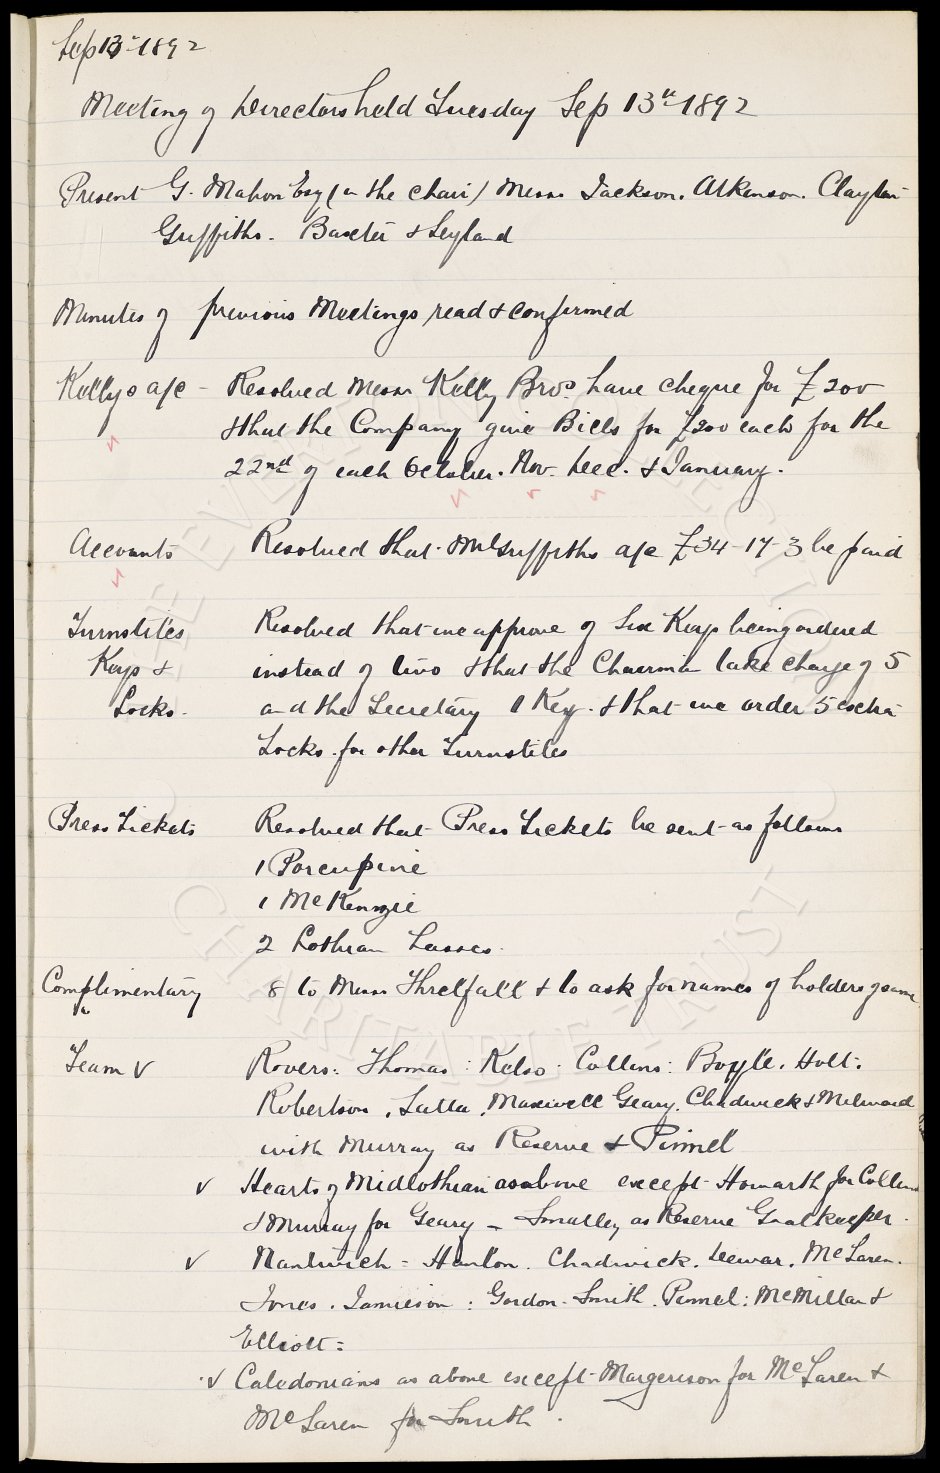 Sep 13th 1892
Meeting of Directors held Tuesday Sep 13th 1892
Present G. Mahon Esq (in the chair) Messrs Jackson. Atkinson. Clayton
Griffiths. Baxter & Leyland
Minutes of previous Meetings read & confirmed
Kellys a/c - Resolved Messrs Kelly Bros. have cheque for £200
& that the Company give Bills for £200 each for the
22nd of each October. Nov. Dec. & January.
Accounts Resolved that Mr Griffiths a/c £34-17-3 be paid
Turnstiles Resolved that we approve of Six Keys being ordered
Keys & instead of two & that the Chairman take charge of 5
Locks. and the Secretary 1 Key. & that we order 5 extra
Locks for other Turnstiles
Press Tickets Resolved that Press Tickets be sent as follows
1 Porcupine
1 McKenzie
2 Lothian Lasses.
Complimentary 8 to Messrs Threlfall & to ask for names of holders of same
Team v Rovers: Thomas: Kelso. Collins: Boyle. Holt:
Robertson. Latta. Maxwell Geary. Chadwick & Milward
with Murray as Reserve & Pinnel
v Hearts of Midlothian as above except Howarth for Collins
& Murray for Geary - Smalley as Reserve Goalkeeper.
v Nantwich = Hanlon. Chadwick. Dewar. McLaren.
Jones. Jamieson: Gordon. Smith. Pinnel: McMillan &
Elliott =
v Caledonians as above except Margerison for McLaren &
McLaren for Smith.
THE EVERTON COLLECTION
CHARITABLE TRUST